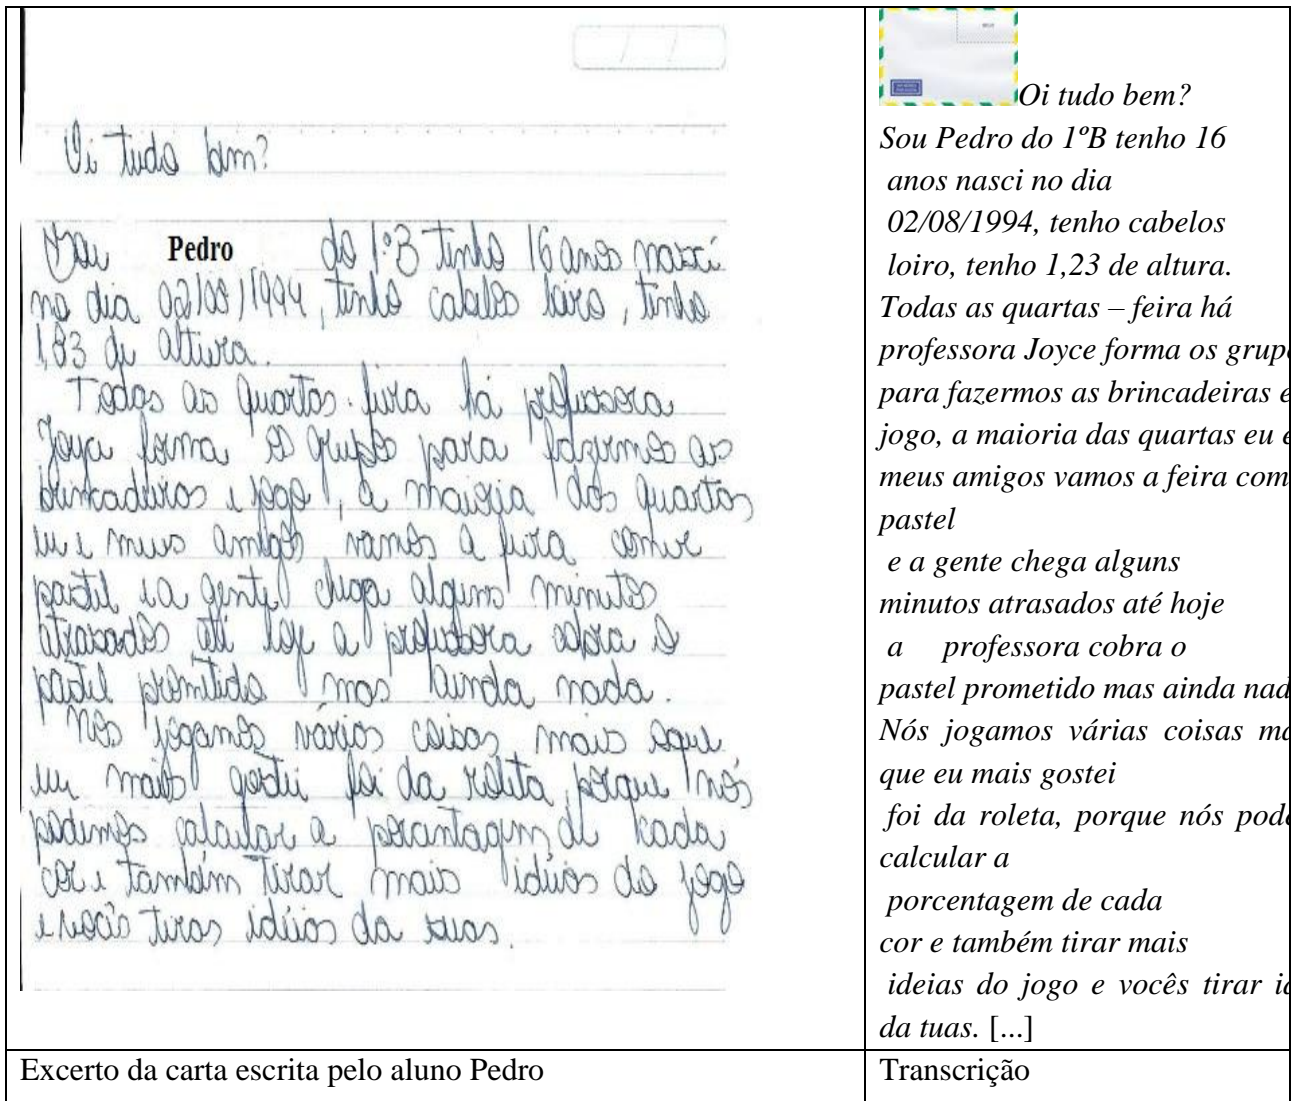 Oi tudo bem?
Sou Pedro do 1ºB tenho 16 anos nasci
no dia 02/08/1994, tenho cabelos loiro, tenho
1,83 de altura.
Todas as quartas-feira há professora
Joyce forma os grupos para fazermos as
brincadeiras e jogo, a maioria das quartas
eu e meus amigos vamos a feira comer
pastel e a gente chega alguns minutos
atrasados até hoje a professora cobra o
pastel prometido mas ainda nada.
Nós jogamos várias coisas mais oque
eu mais gostei foi da roleta, porque nós
podemos calcular a porcentagem de cada
cor e também tirar mais idéias do jogo
e vocês tiras idéias da suas.
Oi tudo bem?
Sou Pedro do 1ºB tenho 16
anos nasci no dia
02/08/1994, tenho cabelos
loiro, tenho 1,23 de altura.
Todas as quartas – feira há
professora Joyce forma os grup
para fazermos as brincadeiras e
jogo, a maioria das quartas eu e
meus amigos vamos a feira com
pastel
e a gente chega alguns
minutos atrasados até hoje
a professora cobra o
pastel prometido mas ainda nad
Nós jogamos várias coisas ma
que eu mais gostei
foi da roleta, porque nós pode
calcular a
porcentagem de cada
cor e também tirar mais
ideias do jogo e vocês tirar id
da tuas. [...]
Excerto da carta escrita pelo aluno Pedro
Transcrição